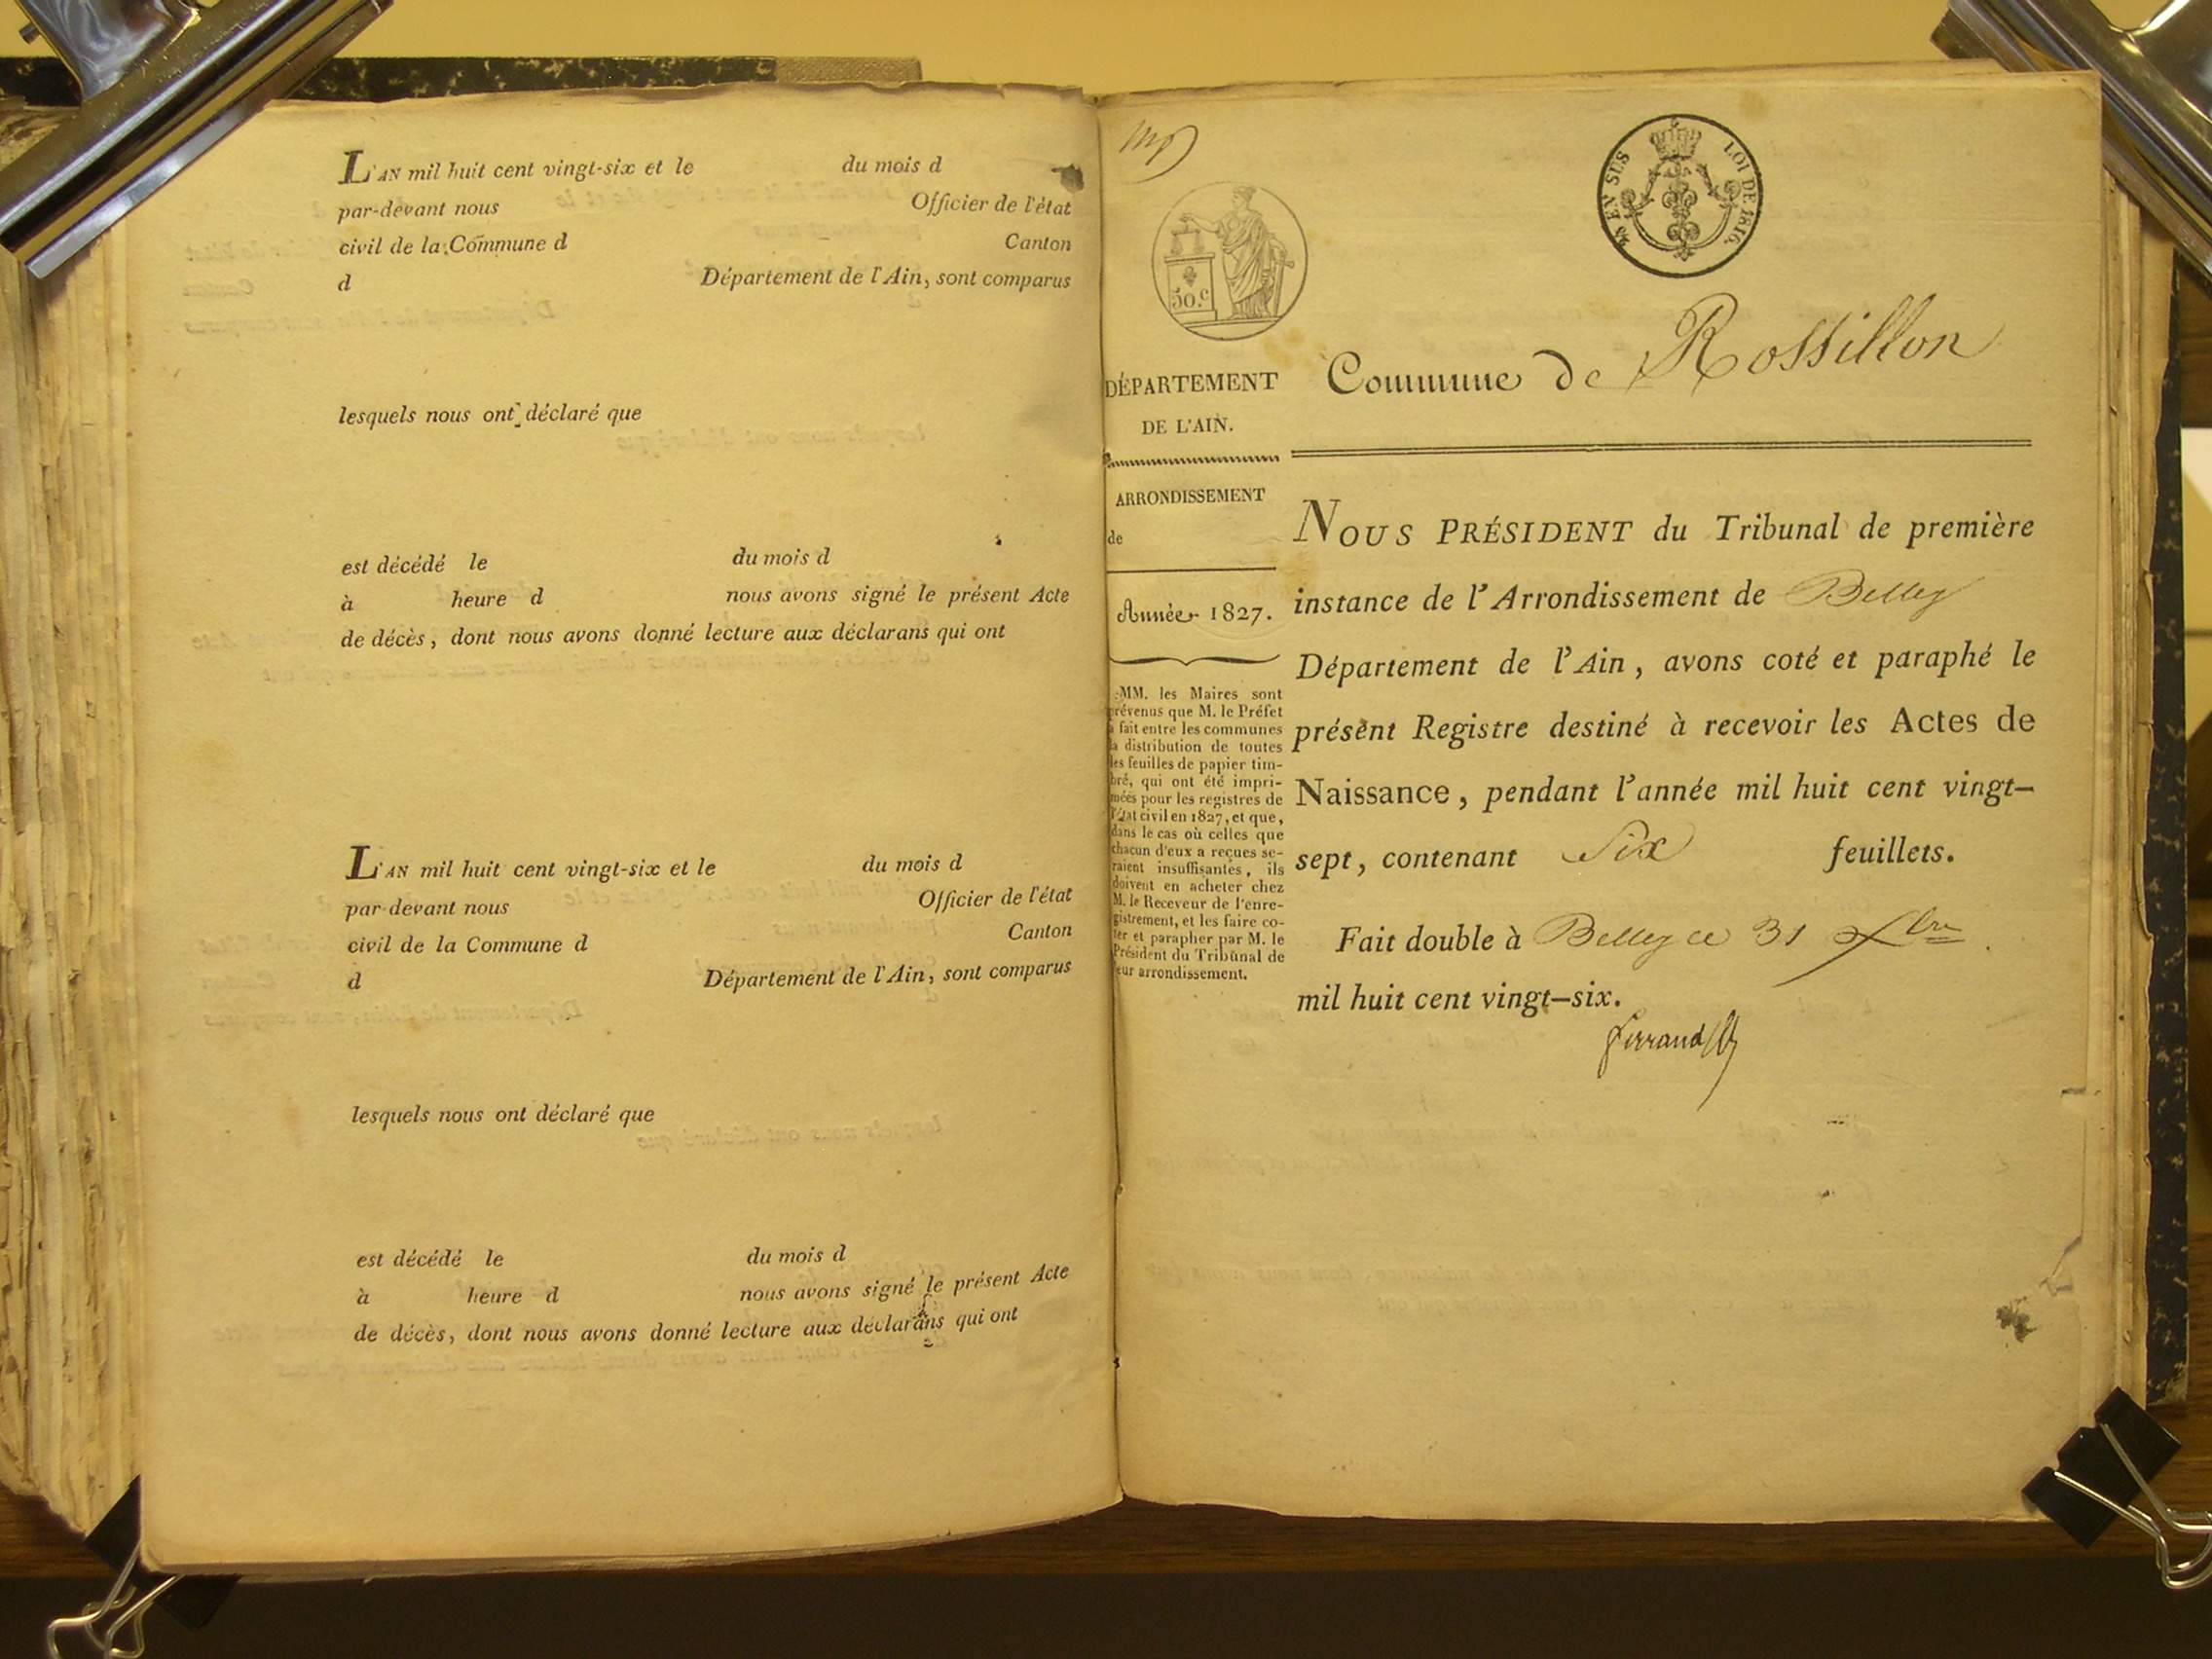 L'AN mil huit cent vingt-six et le du mois d
par-devant nous Officier de l'état
civil de la Commune d Canton
d Département de l'Ain, sont comparus
lesquels nous ont déclaré que
est décédé le du mois d
à heure d nous avons signé le présent Acte
de décès, dont nous avons donné lecture aux déclarans qui ont
L'AN mil huit cent vingt-six et le du mois d
par-devant nous Officier de l'état
civil de la Commune d Canton
d Département de l'Ain, sont comparus
lesquels nous ont déclaré que
est décédé le du mois d
à heure d nous avons signé le présent Acte
de décès, dont nous avons donné lecture aux déclarans qui ont
EN SUS LOI DE 1816.
50.c
DÉPARTEMENT
DE L'AIN.
ARRONDISSEMENT
de
Année 1827.
MM. les Maires sont
prévenus que M. le Préfet
a fait entre les communes
la distribution de toutes
les feuilles de papier tim-
bré, qui ont été impri-
mées pour les registres de
l'état civil en 1827, et que,
dans le cas où celles que
chacun d'eux a reçues se-
raient insuffisantes, ils
doivent en acheter chez
M. le Receveur de l'enre-
gistrement, et les faire co-
ter et parapher par M. le
Président du Tribunal de
leur arrondissement.
Commune de Rossillon
NOUS PRÉSIDENT du Tribunal de première
instance de l'Arrondissement de Belley
Département de l'Ain, avons coté et paraphé le
présent Registre destiné à recevoir les Actes de
Naissance, pendant l'année mil huit cent vingt-
sept, contenant Six feuillets.
Fait double à Belley ce 31 Xbre
mil huit cent vingt-six.
ferrand